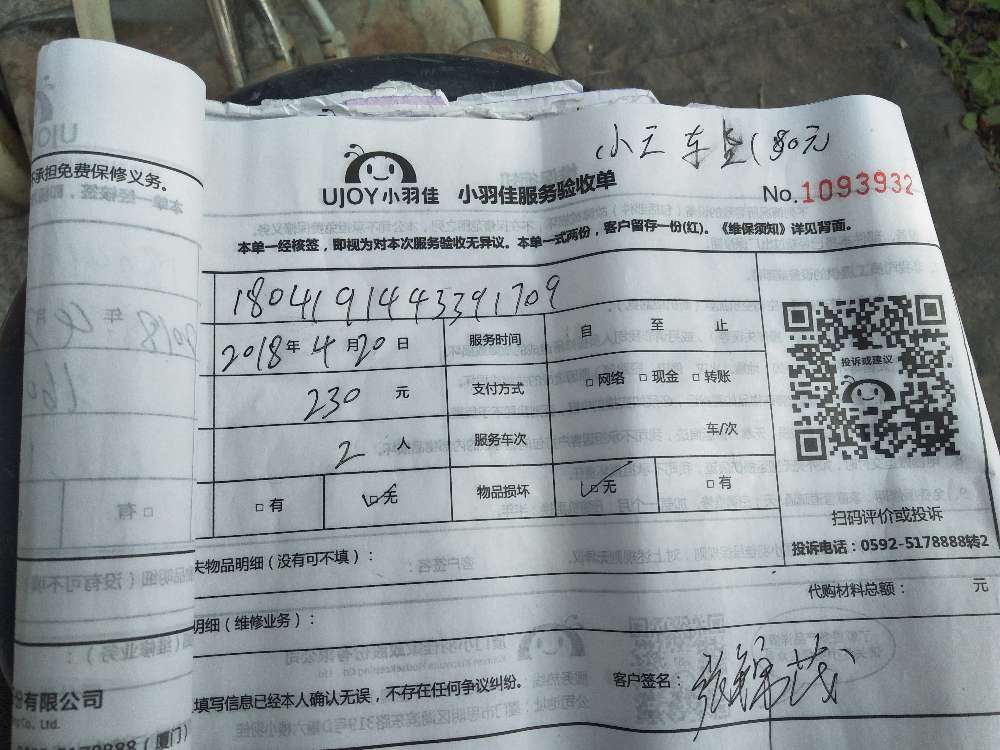 小王 车垫(80元
UJOY小羽佳 小羽佳服务验收单
No.1093932
本单一经核签，即视为对本次服务验收无异议。本单一式两份，客户留存一份(红)。《维保须知》详见背面。
1804191443391709
2018年4月20日 服务时间 自 至 止
230 元 支付方式 □网络 □现金 □转账
2 人 服务车次 车/次
□有 □无 物品损坏 □无 □有
投诉或建议
扫码评价或投诉
投诉电话：0592-5178888转2
失物品明细（没有可不填）：
代购材料总额： 元
明细（维修业务）：
填写信息已经本人确认无误，不存在任何争议纠纷。
客户签名：张锦茂
不承担免费保修义务。
份有限公司
ng Co. Ltd.
5178888（厦门）